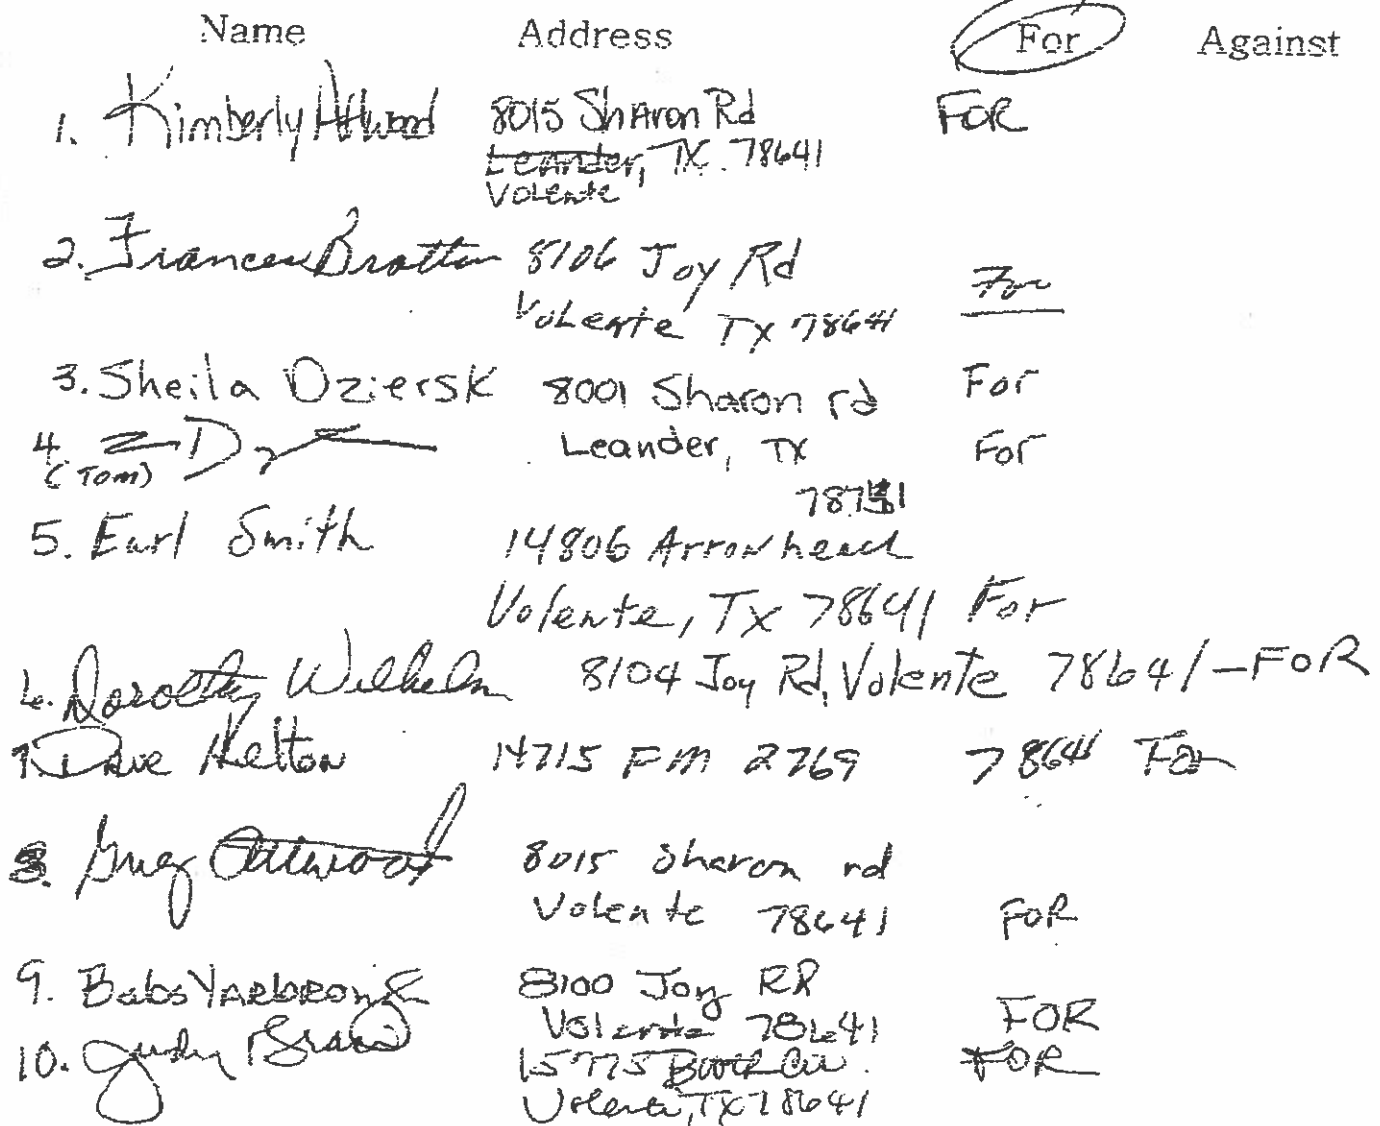 Name Address For Against
1. Kimberly Attwood 8015 Sharon Rd FOR
Leander, TX. 78641
Volente
2. Frances Bratton 8106 Joy Rd
Volente TX 78641 For
3. Sheila Dziersk 8001 Sharon rd For
4. Leander, TX For
(Tom)
5. Earl Smith 14806 Arrowhead
Volente, Tx 78641 For
6. Dorothy Wilhelm 8104 Joy Rd, Volente 78641 - FOR
7. Dave Helton 14715 FM 2769 78641 For
8. Greg Attwood 8015 Sharon rd
Volente 78641 FOR
9. Babs Yarbrough 8100 Joy RD
Volente 78641 FOR
10. Judy 15775 FOR
Volente, TX 78641